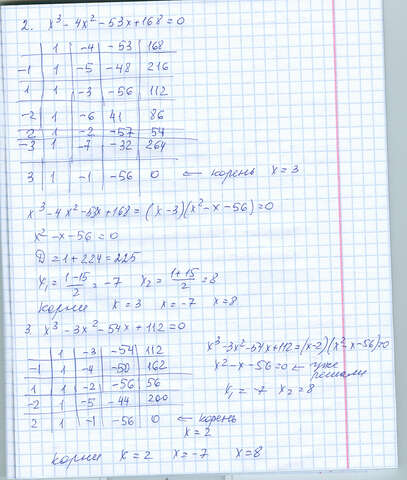 2. x³ - 4x² - 53x + 168 = 0
1 | -4 | -53 | 168
-1 | 1 | -5 | -48 | 216
1 | 1 | -3 | -56 | 112
-2 | 1 | -6 | 41 | 86
2 | 1 | -2 | -57 | 54
-3 | 1 | -7 | -32 | 264
3 | 1 | -1 | -56 | 0 ← корень x = 3
x³ - 4x² - 53x + 168 = (x - 3)(x² - x - 56) = 0
x² - x - 56 = 0
D = 1 + 224 = 225
x₁ = (1 - 15)/2 = -7 x₂ = (1 + 15)/2 = 8
Корни x = 3 x = -7 x = 8
3 x³ - 3x² - 54x + 112 = 0
1 | -3 | -54 | 112
-1 | 1 | -4 | -50 | 162
1 | 1 | -2 | -56 | 56
-2 | 1 | -5 | -44 | 200
2 | 1 | -1 | -56 | 0 ← корень
x = 2
x³ - 3x² - 54x + 112 = (x - 2)(x² - x - 56) = 0
x² - x - 56 = 0 ← уже
решали
x₁ = -7 x₂ = 8
Корни x = 2 x = -7 x = 8